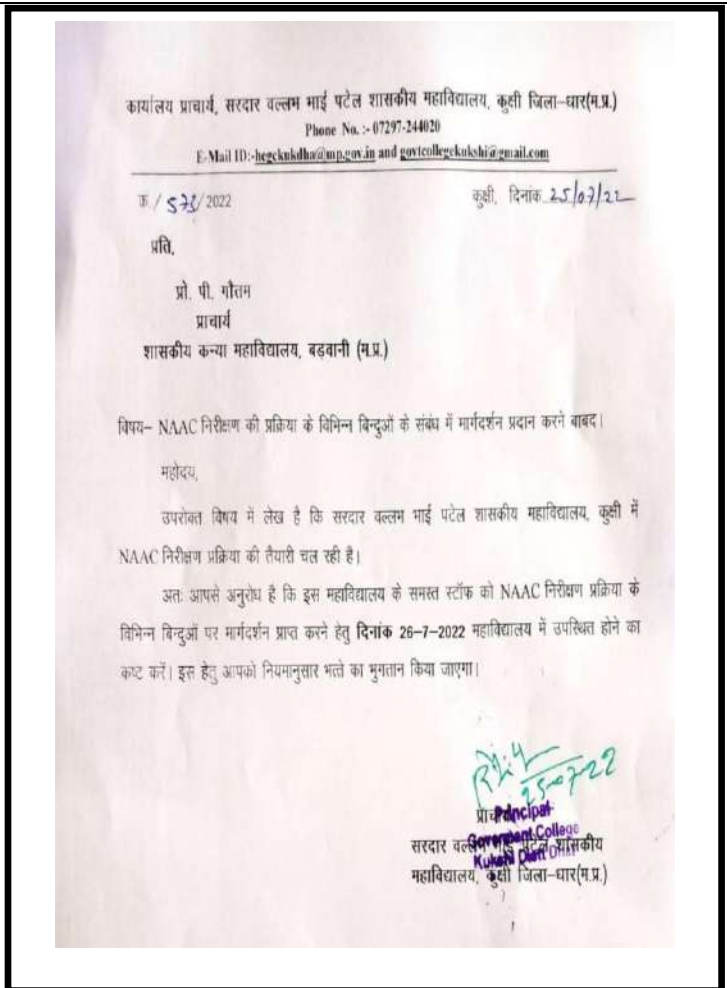 कार्यालय प्राचार्य, सरदार वल्लभ भाई पटेल शासकीय महाविद्यालय, कुक्षी जिला–धार(म.प्र.)
Phone No. :- 07297-244020
E-Mail ID:-hegckukdha@mp.gov.in and govtcollegekukshi@gmail.com
क्र / 573/ 2022 कुक्षी, दिनांक 25/07/22
प्रति,
प्रो. पी. गौतम
प्राचार्य
शासकीय कन्या महाविद्यालय, बड़वानी (म.प्र.)
विषय– NAAC निरीक्षण की प्रक्रिया के विभिन्न बिन्दुओं के संबंध में मार्गदर्शन प्रदान करने बाबद।
महोदय,
उपरोक्त विषय में लेख है कि सरदार वल्लभ भाई पटेल शासकीय महाविद्यालय, कुक्षी में
NAAC निरीक्षण प्रक्रिया की तैयारी चल रही है।
अतः आपसे अनुरोध है कि इस महाविद्यालय के समस्त स्टॉफ को NAAC निरीक्षण प्रक्रिया के
विभिन्न बिन्दुओं पर मार्गदर्शन प्राप्त करने हेतु दिनांक 26-7-2022 महाविद्यालय में उपस्थित होने का
कष्ट करें। इस हेतु आपको नियमानुसार भत्ते का भुगतान किया जाएगा।
25-07-22
प्राचार्य
Principal
Government College
सरदार वल्लभ भाई पटेल शासकीय
Kukshi Distt Dhar
महाविद्यालय, कुक्षी जिला–धार(म.प्र.)